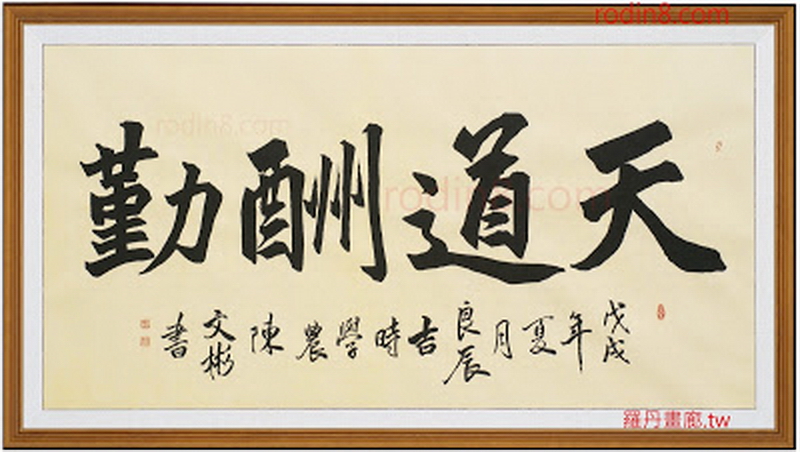 rodin8.com
天道酬勤
rodin8.com
rodin8.com
戊戌年夏月良辰吉時學農陳文彬書
羅丹畫廊.tw